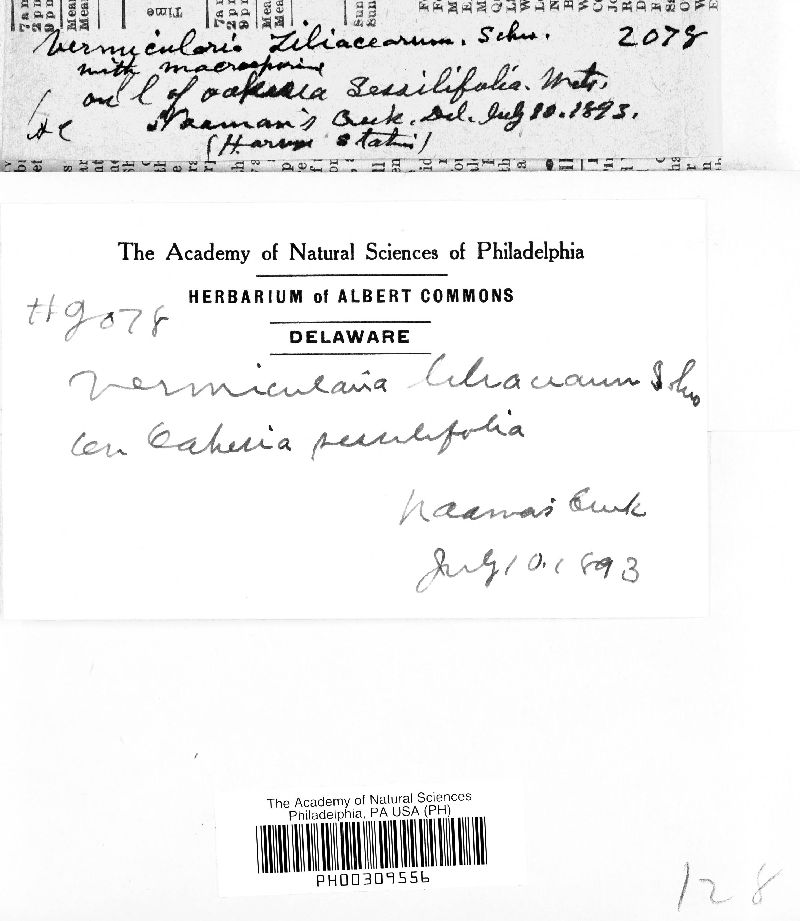 Vermicularia Liliacearum. Schw. 2078
with macrosporium
on l of oakesia Sessilifolia. Wats.
Naaman's Creek. Del. July 10. 1893.
(Harvey Station)
The Academy of Natural Sciences of Philadelphia
HERBARIUM of ALBERT COMMONS
#2078
DELAWARE
Vermicularia liliacearum Schw
On Oakesia sessilifolia
Naaman's Creek
July 10. 1893
The Academy of Natural Sciences
Philadelphia, PA USA (PH)
PH00309556
128